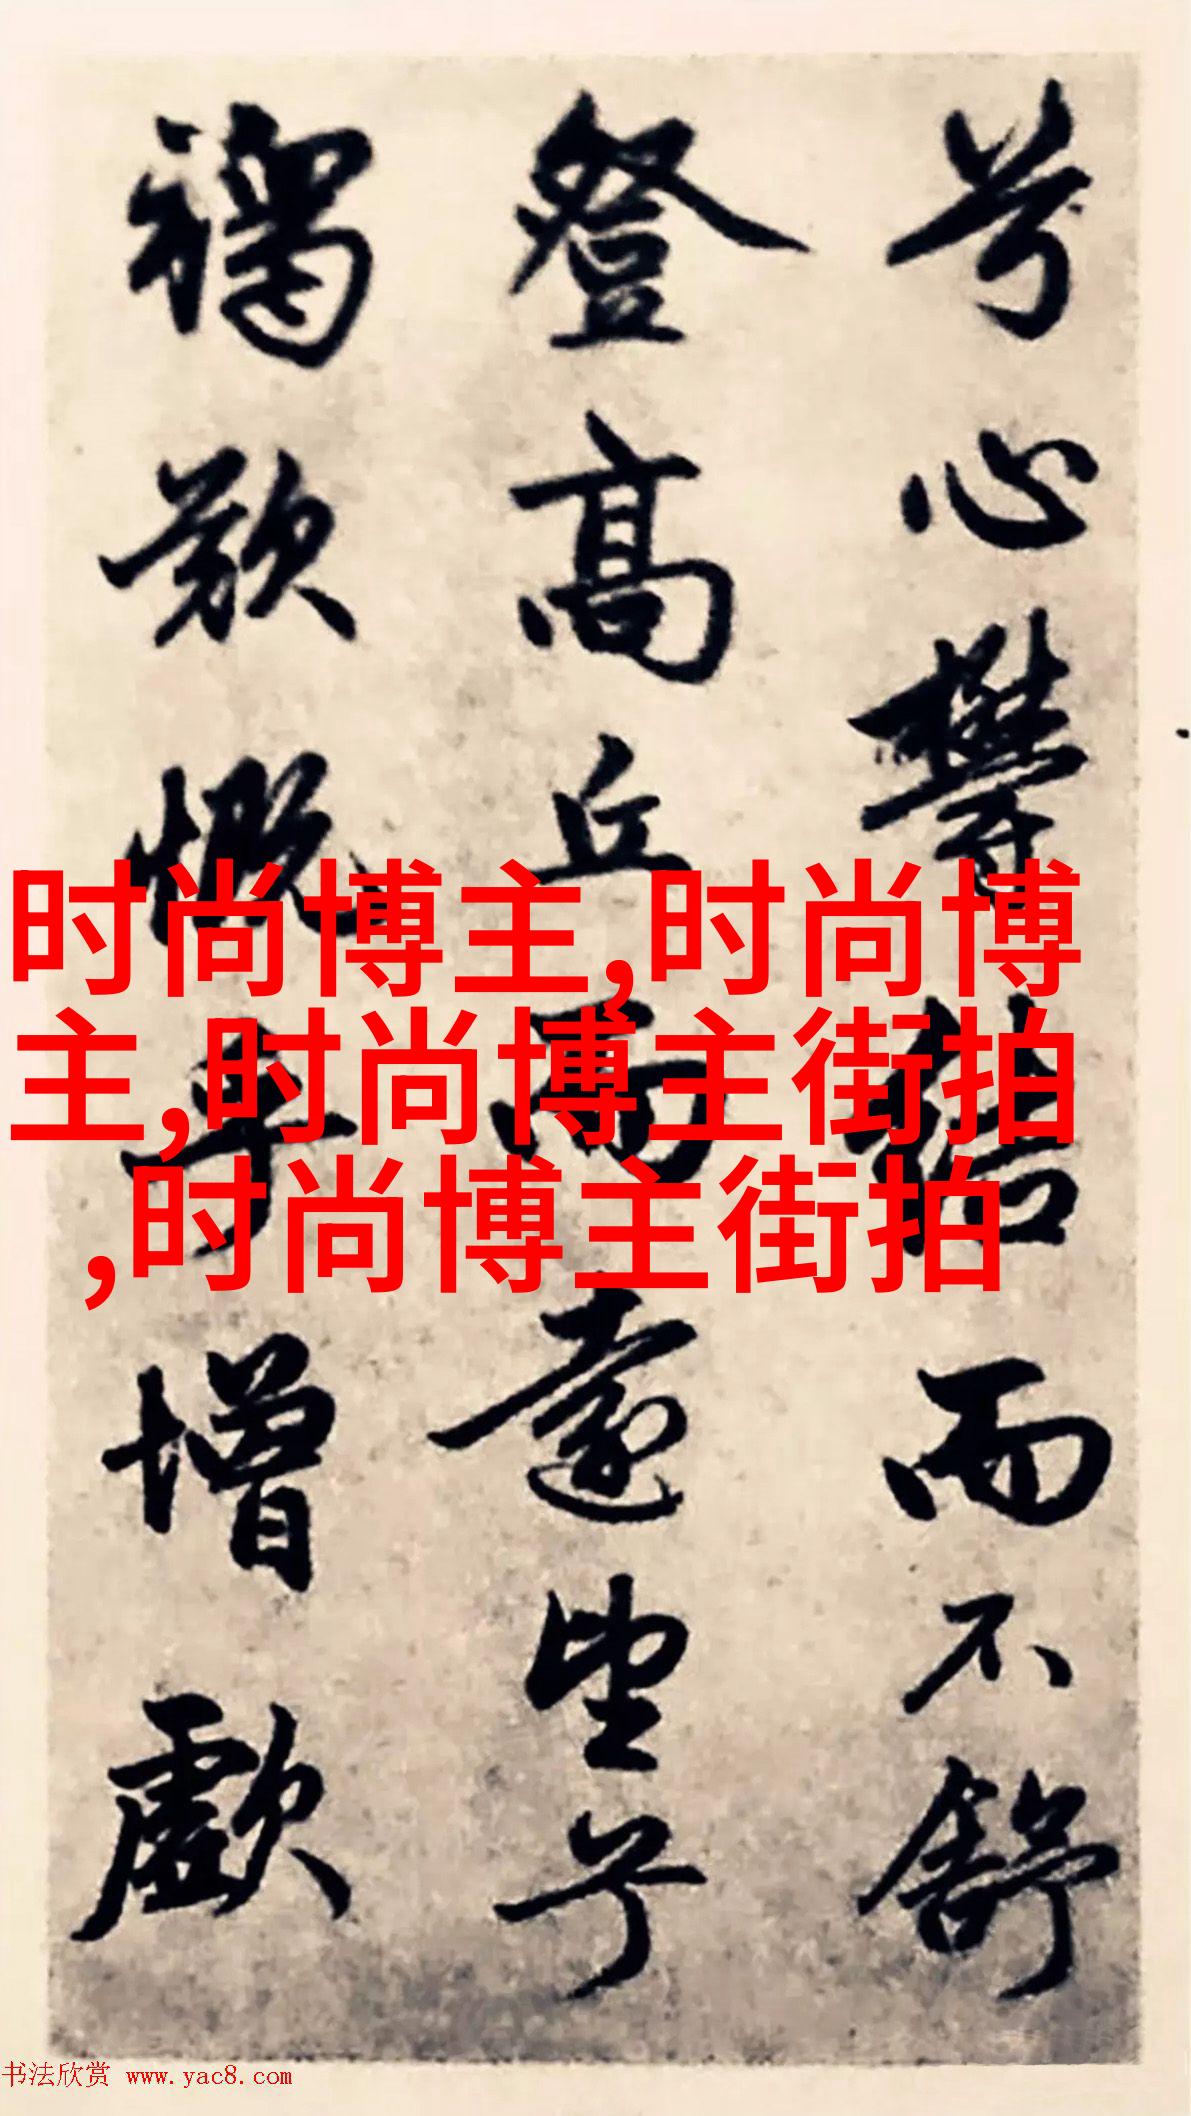 兮心鬱結而不舒
登高丘而遠望兮
褐欷慨乎增歔
时尚博主,时尚博
主,时尚博主街拍
,时尚博主街拍
书法欣赏 www.yac8.com